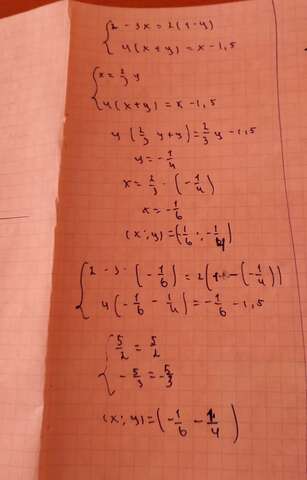 { 2 - 3x = 2(1 - y)
4(x + y) = x - 1,5
{ x = 2/3 y
4(x + y) = x - 1,5
4(2/3 y + y) = 2/3 y - 1,5
y = -1/4
x = 2/3 · (-1/4)
x = -1/6
(x; y) = (-1/6; -1/4)
{ 2 - 3 · (-1/6) = 2(1 - (-1/4))
4(-1/6 - 1/4) = -1/6 - 1,5
{ 5/2 = 5/2
-5/3 = -5/3
(x; y) = (-1/6 - 1/4)